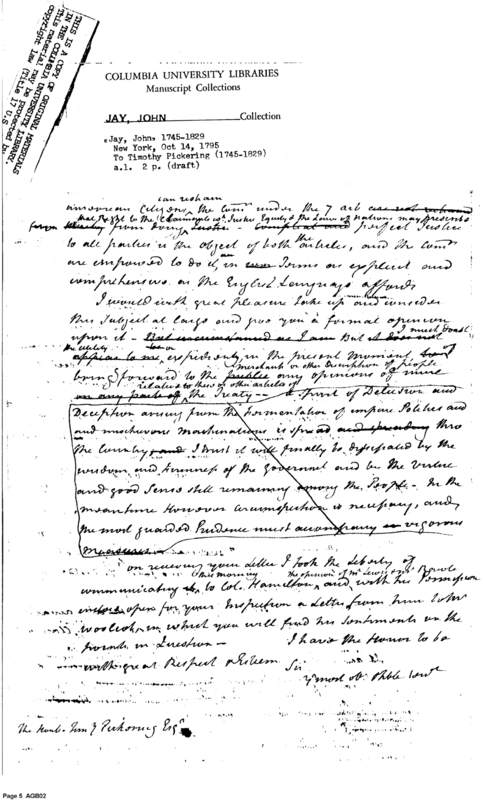 THIS IS A COPY OF ORIGINAL MATERIALS
IN THE COLUMBIA UNIVERSITY LIBRARY.
This material may be protected by
copyright law (Title 17 U.S.
COLUMBIA UNIVERSITY LIBRARIES
Manuscript Collections
JAY, JOHN Collection
Jay, John, 1745-1829
New York, Oct 14, 1795
To Timothy Pickering (1745-1829)
a.l. 2 p. (draft)
can restrain
american Citizens, the Comrs under the 7 art
that Right to the Claimants wh. Justice Equity & the Laws of Nations may prescribe
from doing Justice - perfect Justice
to all parties is the object of both the articles, and the Comrs
are empowered to do it, in Terms as explicit and
comprehensive as the English Language affords
I would with great pleasure take up and consider
this Subject at large and give you a formal opinion
upon it - But unconcerned as I am But I must doubt
the utility
appear to me expediency in the present moment of
merchants or other Description of People
bring forward to the public any opinions of mine
relative to these or other articles of
on any part of the Treaty - a Spirit of Delusion and
Deception arising from the Fermentation of impure Politics and
and mischievous machinations is spread and spreading thro
the Country and I trust it will finally be dissipated by the
wisdom and firmness of the Government and by the virtue
and good Sense still remaining among the People - In the
meantime However circumspection is necessary, and
the most guarded Prudence must accompany vigorous
measures
on receiving your Letter I took the Liberty of
this morning the opinion of Mr Lewis and Rawle
communicating it, to Col. Hamilton, and with his Permission
enclose open for your Inspection a Letter from him to Mr
Woolcot, in which you will find his Sentiments on the
Points in Question - I have the Honor to be
with great Respect & Esteem Sir
yr most ob. & hble servt
The Honb. Tim y Pickering Esqr
Page 5 AGB02